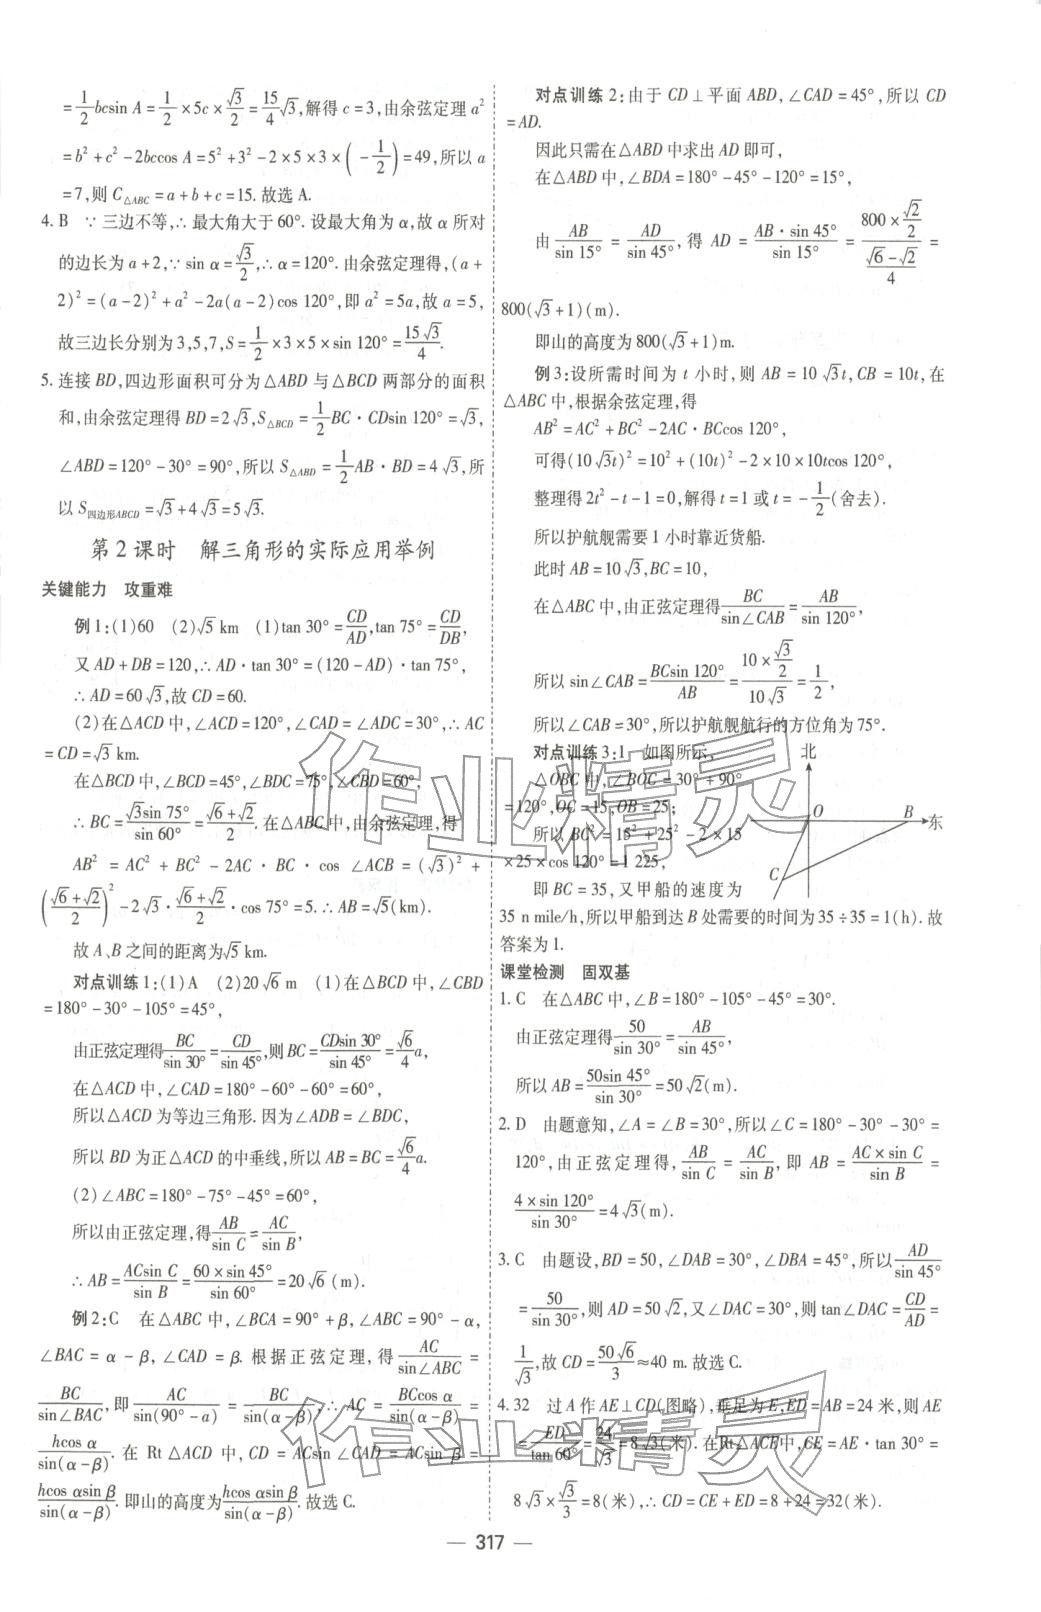 =1/2 bcsin A=1/2×5c×√3/2=15/4 √3,解得 c=3,由余弦定理 a²
=b²+c²-2bccos A=5²+3²-2×5×3×(-1/2)=49,所以 a
=7,则 C△ABC=a+b+c=15.故选 A.
4. B ∵ 三边不等,∴ 最大角大于 60°.设最大角为 α,故 α 所对
的边长为 a+2,∵ sin α=√3/2,∴ α=120°.由余弦定理得,(a+
2)²=(a-2)²+a²-2a(a-2)cos 120°,即 a²=5a,故 a=5,
故三边长分别为 3,5,7,S=1/2×3×5×sin 120°=15√3/4.
5. 连接 BD,四边形面积可分为△ABD 与△BCD 两部分的面积
和,由余弦定理得 BD=2√3,S△BCD=1/2 BC·CDsin 120°=√3,
∠ABD=120°-30°=90°,所以 S△ABD=1/2 AB·BD=4√3,所
以 S四边形ABCD=√3+4√3=5√3.
第 2 课时 解三角形的实际应用举例
关键能力 攻重难
例 1:(1)60 (2)√5 km (1)tan 30°=CD/AD,tan 75°=CD/DB,
又 AD+DB=120,∴ AD·tan 30°=(120-AD)·tan 75°,
∴ AD=60√3,故 CD=60.
(2)在△ACD 中,∠ACD=120°,∠CAD=∠ADC=30°,∴ AC
=CD=√3 km.
在△BCD 中,∠BCD=45°,∠BDC=75°,∠CBD=60°,
∴ BC=√3sin 75°/sin 60°=(√6+√2)/2.在△ABC 中,由余弦定理,得
AB²=AC²+BC²-2AC·BC·cos ∠ACB=(√3)²+
((√6+√2)/2)²-2√3·(√6+√2)/2·cos 75°=5.∴ AB=√5(km).
故 A、B 之间的距离为√5 km.
对点训练 1:(1)A (2)20√6 m (1)在△BCD 中,∠CBD
=180°-30°-105°=45°,
由正弦定理得BC/sin 30°=CD/sin 45°,则 BC=CDsin 30°/sin 45°=√6/4 a,
在△ACD 中,∠CAD=180°-60°-60°=60°,
所以△ACD 为等边三角形.因为∠ADB=∠BDC,
所以 BD 为正△ACD 的中垂线,所以 AB=BC=√6/4 a.
(2)∠ABC=180°-75°-45°=60°,
所以由正弦定理,得AB/sin C=AC/sin B,
∴ AB=ACsin C/sin B=60×sin 45°/sin60°=20√6(m).
例 2:C 在△ABC 中,∠BCA=90°+β,∠ABC=90°-α,
∠BAC=α-β,∠CAD=β.根据正弦定理,得AC/sin∠ABC=
BC/sin∠BAC,即AC/sin(90°-α)=BC/sin(α-β),∴ AC=BCcos α/sin(α-β)=
hcos α/sin(α-β).在 Rt△ACD 中,CD=ACsin ∠CAD=ACsin β=
hcos αsin β/sin(α-β).即山的高度为hcos αsin β/sin(α-β).故选 C.
对点训练 2:由于 CD⊥平面 ABD,∠CAD=45°,所以 CD
=AD.
因此只需在△ABD 中求出 AD 即可,
在△ABD 中,∠BDA=180°-45°-120°=15°,
由 AB/sin 15°=AD/sin 45°,得 AD=AB·sin 45°/sin 15°=(800×√2/2)/((√6-√2)/4)=
800(√3+1)(m).
即山的高度为 800(√3+1)m.
例 3:设所需时间为 t 小时,则 AB=10√3t,CB=10t,在
△ABC 中,根据余弦定理,得
AB²=AC²+BC²-2AC·BCcos 120°,
可得(10√3t)²=10²+(10t)²-2×10×10tcos 120°,
整理得 2t²-t-1=0,解得 t=1 或 t=-1/2(舍去).
所以护航舰需要 1 小时靠近货船.
此时 AB=10√3,BC=10,
在△ABC 中,由正弦定理得BC/sin∠CAB=AB/sin 120°,
所以 sin∠CAB=BCsin 120°/AB=(10×√3/2)/(10√3)=1/2,
所以∠CAB=30°,所以护航舰航行的方位角为 75°.
对点训练 3:1 如图所示,
△OBC 中,∠BOC=30°+90°
=120°,OC=15,OB=25;
所以 BC²=15²+25²-2×15
×25×cos 120°=1 225,
即 BC=35,又甲船的速度为
35 n mile/h,所以甲船到达 B 处需要的时间为 35÷35=1(h).故
答案为 1.
北
O
B
东
C
课堂检测 固双基
1. C 在△ABC 中,∠B=180°-105°-45°=30°.
由正弦定理得50/sin 30°=AB/sin 45°,
所以 AB=50sin 45°/sin 30°=50√2(m).
2. D 由题意知,∠A=∠B=30°,所以∠C=180°-30°-30°=
120°,由正弦定理得,AB/sin C=AC/sin B,即 AB=AC×sin C/sin B=
4×sin 120°/sin 30°=4√3(m).
3. C 由题设,BD=50,∠DAB=30°,∠DBA=45°,所以AD/sin 45°
=50/sin 30°,则 AD=50√2,又∠DAC=30°,则 tan∠DAC=CD/AD=
1/√3,故 CD=50√6/3≈40 m.故选 C.
4. 32 过 A 作 AE⊥CD(图略),垂足为 E,ED=AB=24 米,则 AE
=ED/tan 60°=24/√3=8√3(米).在 Rt△ACE中,CE=AE·tan 30°=
8√3×√3/3=8(米),∴ CD=CE+ED=8+24=32(米).
作业精灵
作业精灵
— 317 —